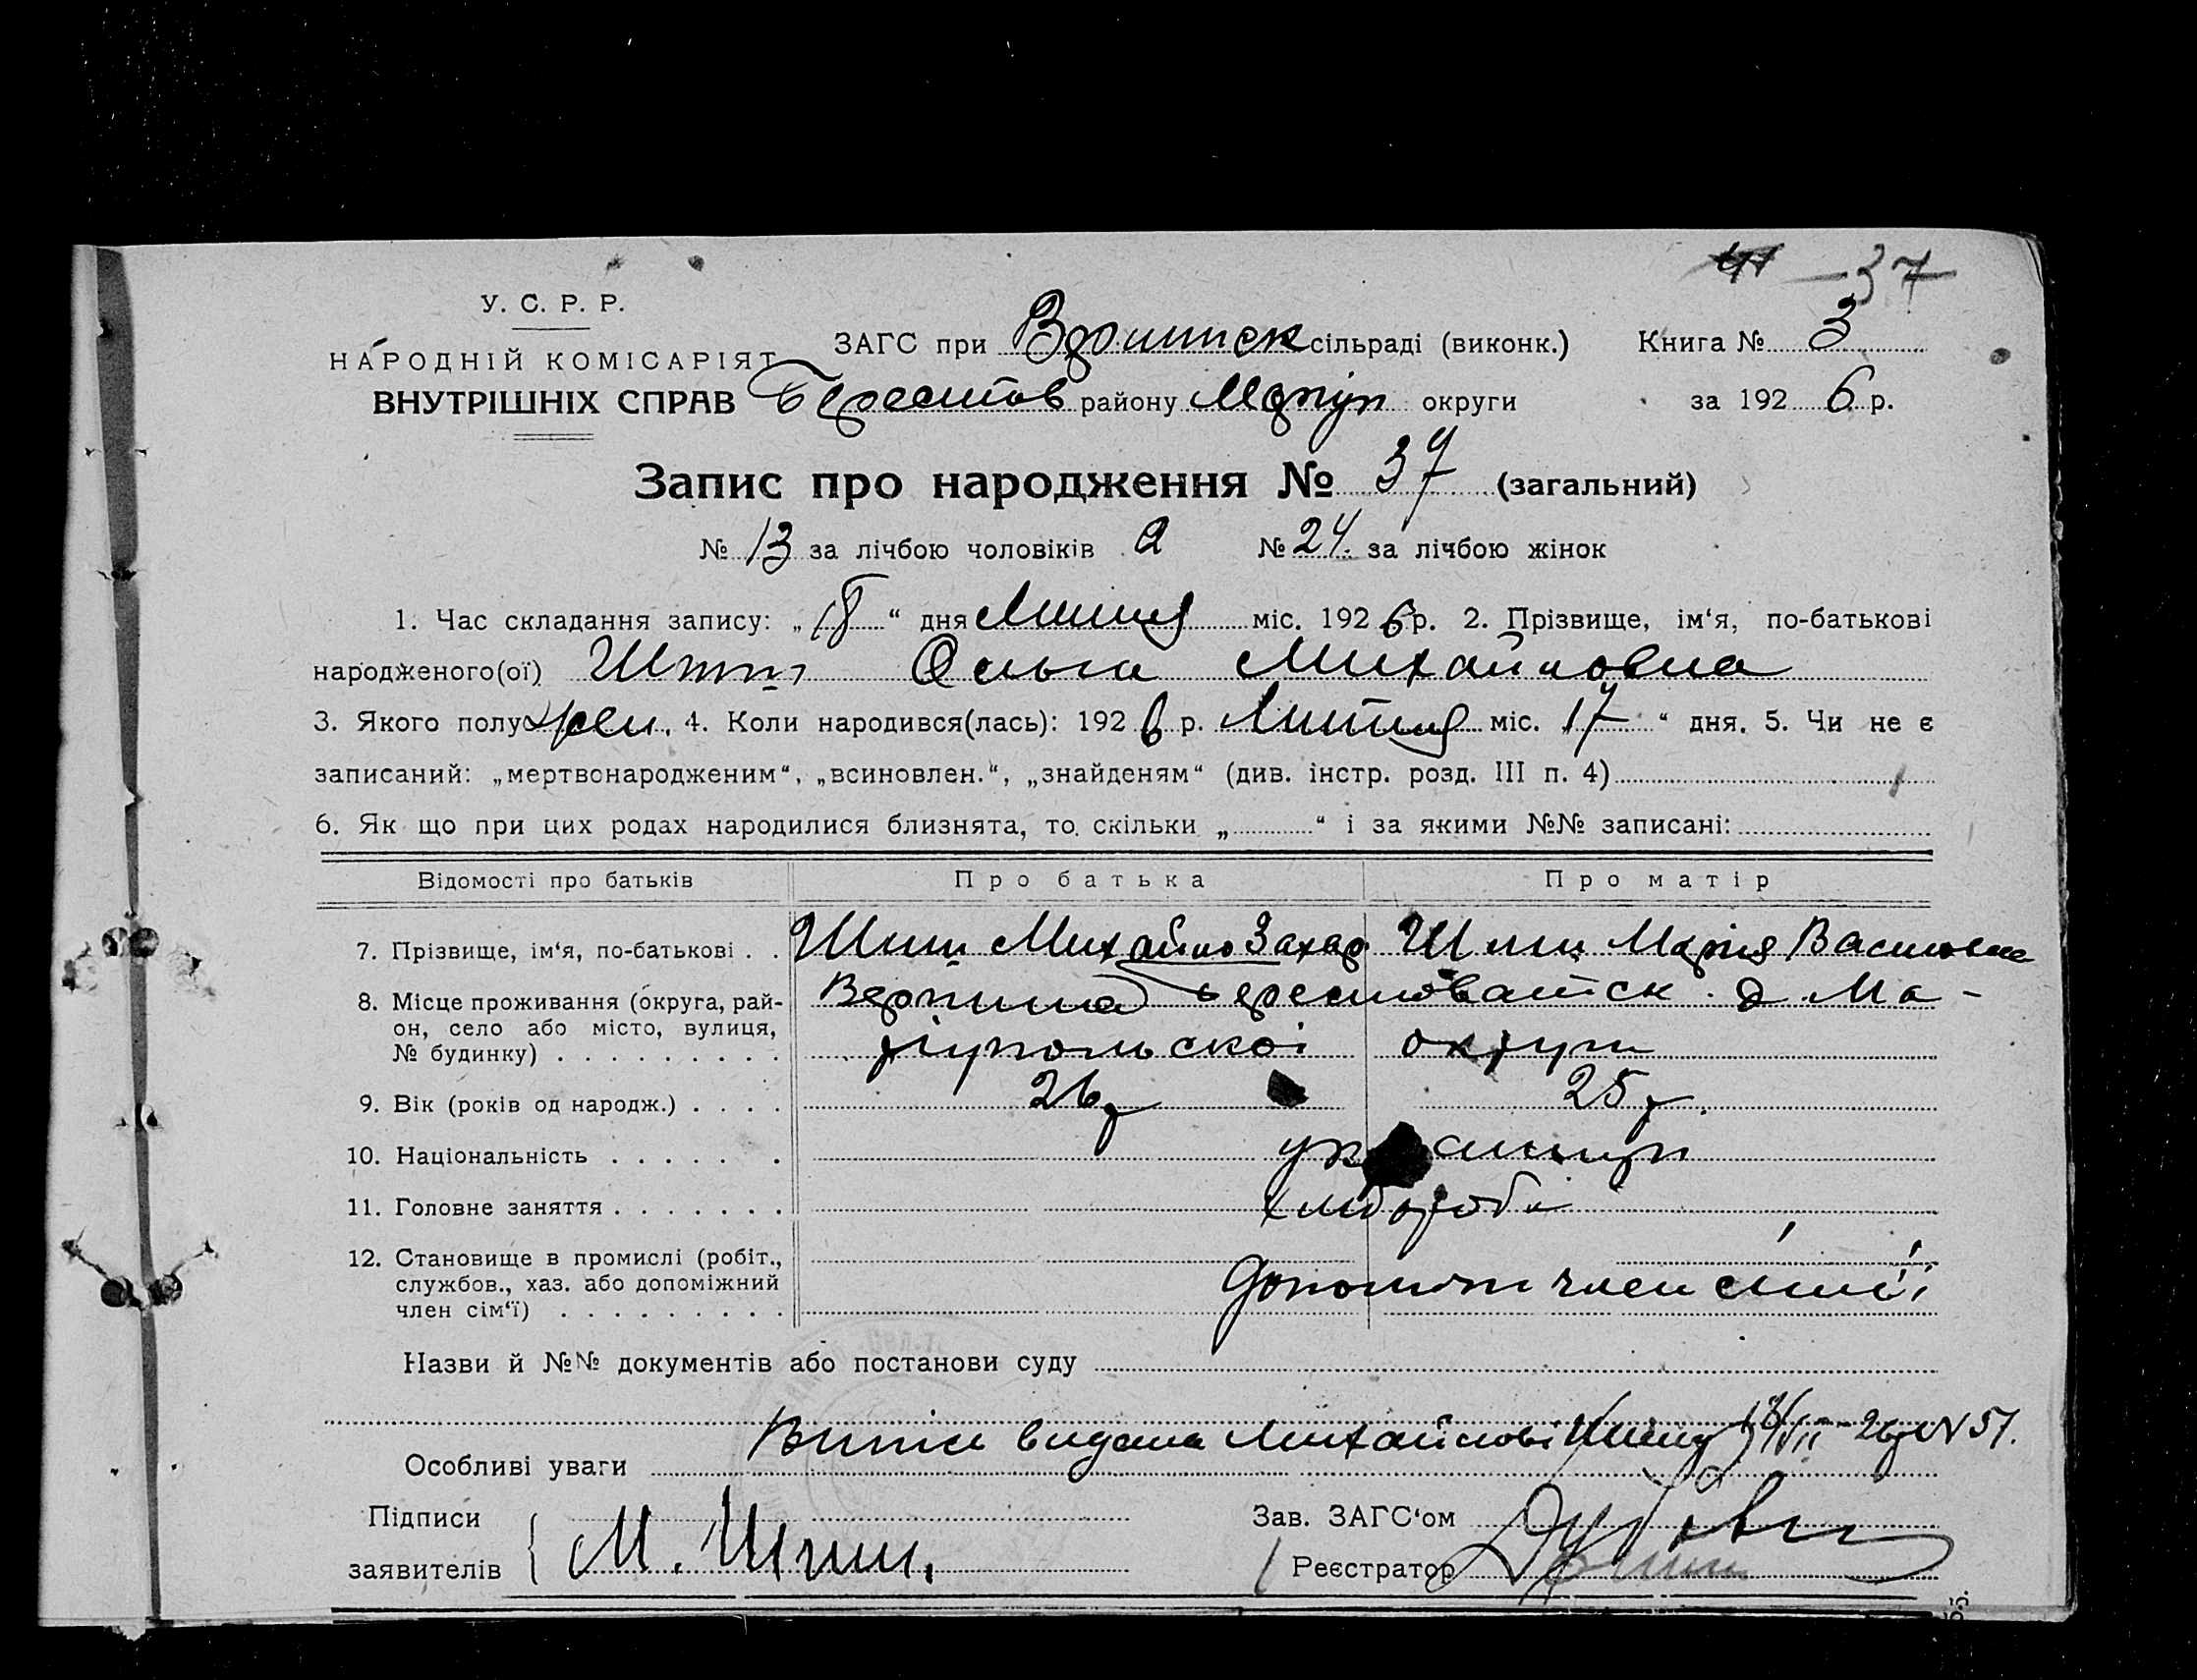 37
У. С. Р. Р.
НАРОДНІЙ КОМІСАРІЯТ
ВНУТРІШНІХ СПРАВ
ЗАГС при сільраді (виконк.) Книга № 3
Берестов району Маріуп округи за 1926 р.
Запис про народження № 37 (загальний)
№ 13 за лічбою чоловіків а № 24. за лічбою жінок
1. Час складання запису: „18“ дня Липня міс. 1926 р. 2. Прізвище, ім‘я, по-батькові
народженого(ої) Ольга Михайловна
3. Якого полу жен. 4. Коли народився(лась): 1926 р. Липня міс. 17 “ дня. 5. Чи не є
записаний: „мертвонародженим“, „всиновлен.“, „знайденям“ (див. інстр. розд. III п. 4)
6. Як що при цих родах народилися близнята, то скільки „ “ і за якими №№ записані:
Відомості про батьків Про батька Про матір
7. Прізвище, ім‘я, по-батькові . . Михайло Захар Марія Васильевна
8. Місце проживання (округа, рай-
он, село або місто, вулиця,
№ будинку) . . . . . . . . .
Ма-
ріупольскоі округи
9. Вік (років од народж.) . . . . 26 р 25 р.
10. Національність . . . . . .
11. Головне заняття . . . . . . . хлібороби
12. Становище в промислі (робіт.,
службов., хаз. або допоміжний
член сім‘ї) . . . . . . . . .
член сим'ї
Назви й №№ документів або постанови суду
Особливі уваги Випис видана Михайлові 18/VII-26р N 51.
Підписи
заявителів М.
Зав. ЗАГС‘ом
Реєстратор